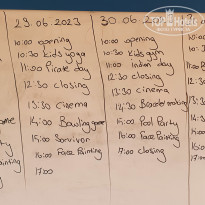 29.06 2023
10:00 opening
10:30 kids yoga
11:00 Pirate day
12:30 closing
13:30 cinema
14:00 Bowling game
15:00 Survivor
16:00 Face Painting
17:00
30.06
10:00 opening
10:30 kids gym
11:00 Indian day
12:30 closing
13:30 cinema
14:30 Bracelet making
15:00 Pool Party
16:00 Face Painting
17:00 closing
TopHotels